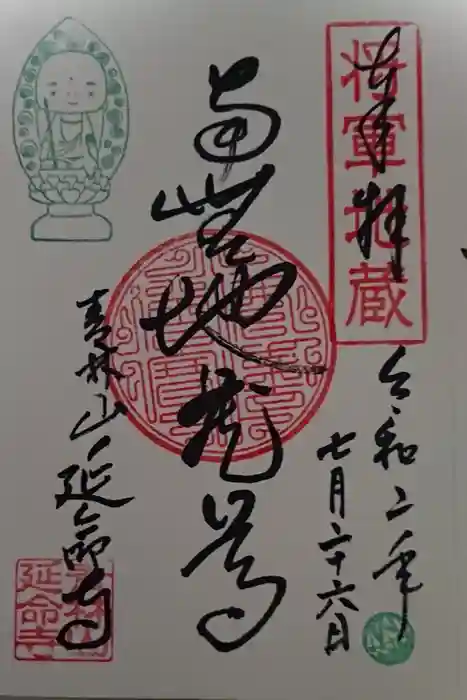 奉拝
将軍地蔵
令和二年
七月二十六日
南無地蔵尊
青林山 延命寺
青林山
延命寺